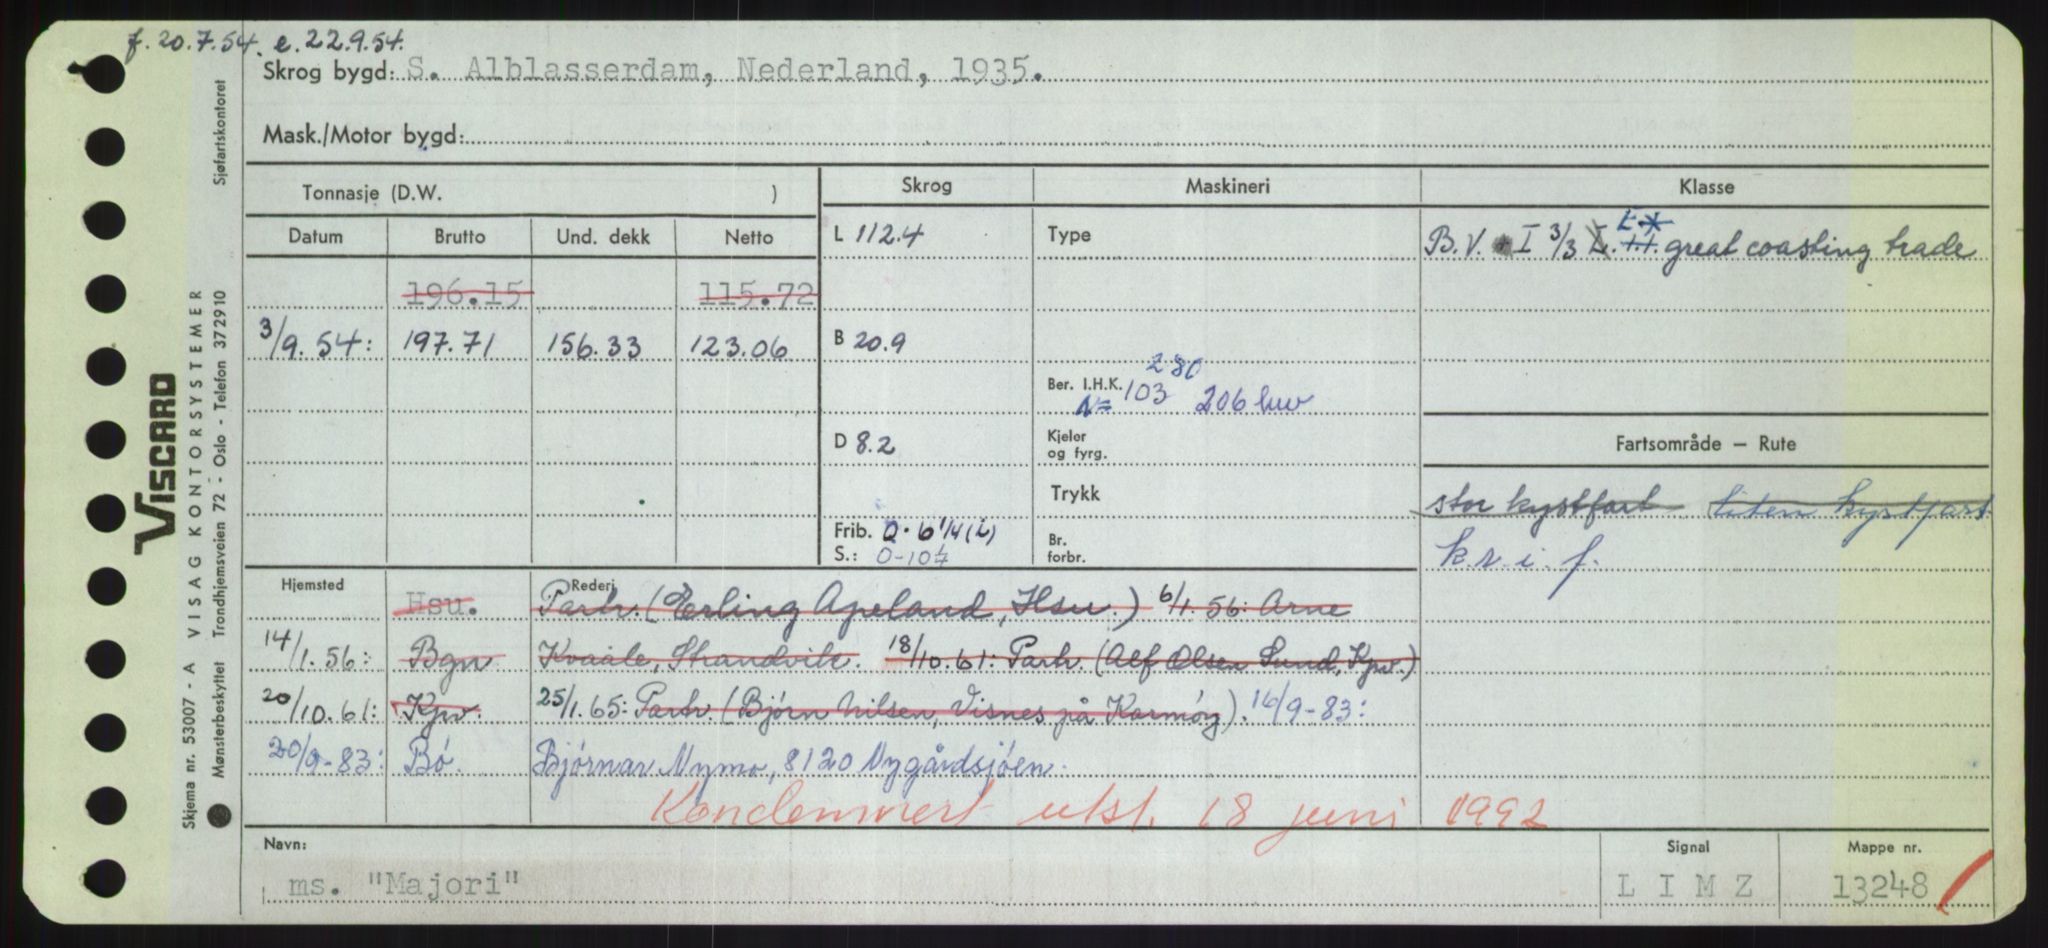 f. 20.7.54. e. 22.9.54.
Skrog bygd: S. Alblasserdam, Nederland, 1935.
Mask./Motor bygd:
Tonnasje (D.W. )
Skrog
Maskineri
Klasse
Datum Brutto Und. dekk Netto
L 112.4
Type
B.V. I 3/3 L. E.* great coasting trade
196.15 115.72
3/9.54: 197.71 156.33 123.06
B 20.9
Ber. I.H.K. 280
N= 103 206 luw
D 8.2
Kjeler og fyrg.
Fartsområde — Rute
Trykk
stor kystfart liten kystfart
Frib. 0 - 6 1/4 (L)
S.: 0-10 1/4
Br. forbr.
k.v.i.f.
Hjemsted
Rederi
Hsu. Partr. (Erling Apeland, Hsu.) 6/1.56: Arne
14/1.56: Bgn Kvaale, Strandvik. 18/10.61: Partr. (Alf Olsen Sund, Kpv.)
20/10.61: Kpv. 25/1.65: Partr. (Bjørn Nilsen, Visnes på Karmøy). 16/9-83:
20/9-83: Bø. Bjørnar Nymo, 8120 Nygårdsjøen.
Kondemnert utst. 18 juni 1992
Navn: ms. "Majori"
Signal L I M Z
Mappe nr. 13248
VISCARD
Skjema nr. 53007 - A VISAG KONTORSYSTEMER
Mønsterbeskyttet Trondhjemsveien 72 - Oslo - Telefon 372910 Sjøfartskontoret